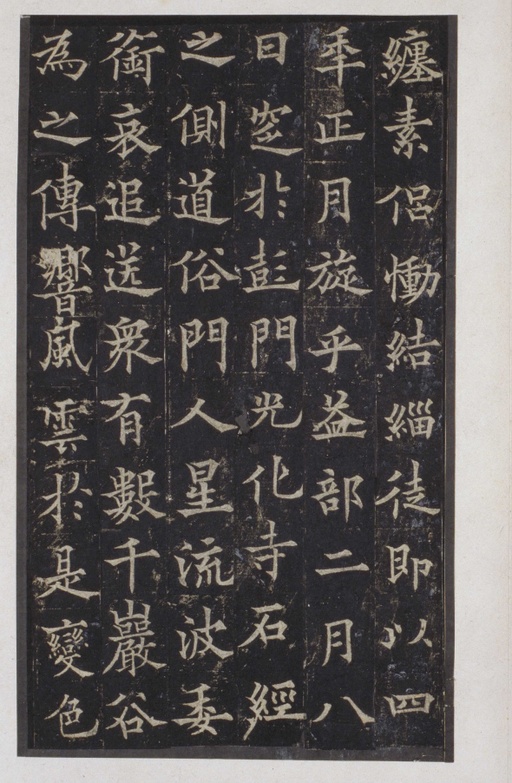 纏素侶慟結緇徒即以四
秊正月旋乎益部二月八
日窆於彭門光化寺石經
之側道俗門人星流波委
銜哀追送衆有數千巖谷
為之傳響風雲於是變色